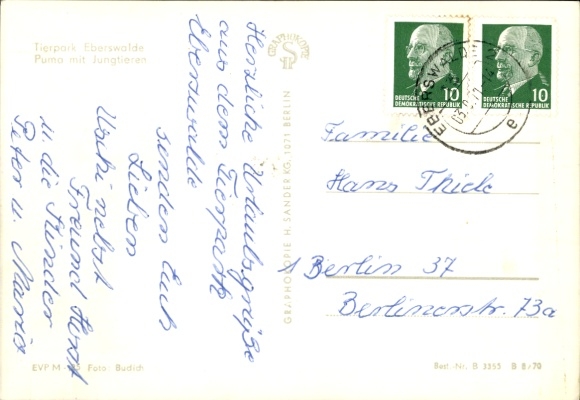 Tierpark Eberswalde
Puma mit Jungtieren
Herzliche Urlaubsgrüße
aus dem Tierpark
Eberswalde
senden Euch
Lieben
Uschi nebst
Freund Horst
u. die Kinder
Peter u. Mario
EVP M
Foto: Budich
GRAPHOKOPIE
GRAPHOKOPIE H. SANDER KG. 1071 BERLIN
10
DEUTSCHE
DEMOKRATISCHE REPUBLIK
10
DEUTSCHE
DEMOKRATISCHE REPUBLIK
EBERSWALDE
e
Familie
Hans Thiele
1 Berlin 37
Berlinerstr. 73a
Best.-Nr. B 3355 B 8/70